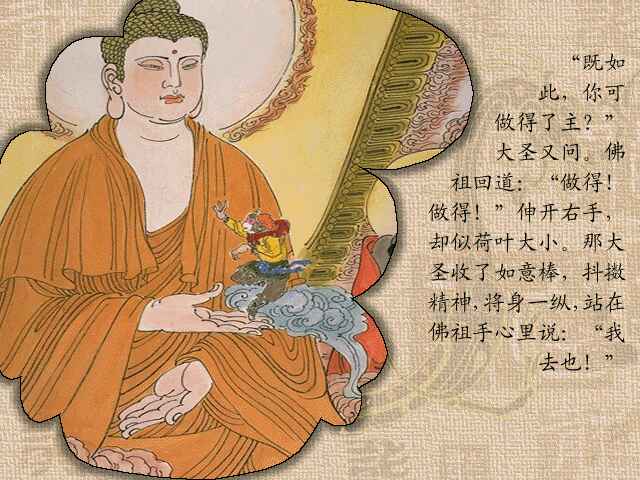 “既如
此，你可
做得了主？”
大圣又问。佛
祖回道：“做得！
做得！”伸开右手，
却似荷叶大小。那大
圣收了如意棒，抖擞
精神，将身一纵，站在
佛祖手心里说：“我
去也！”